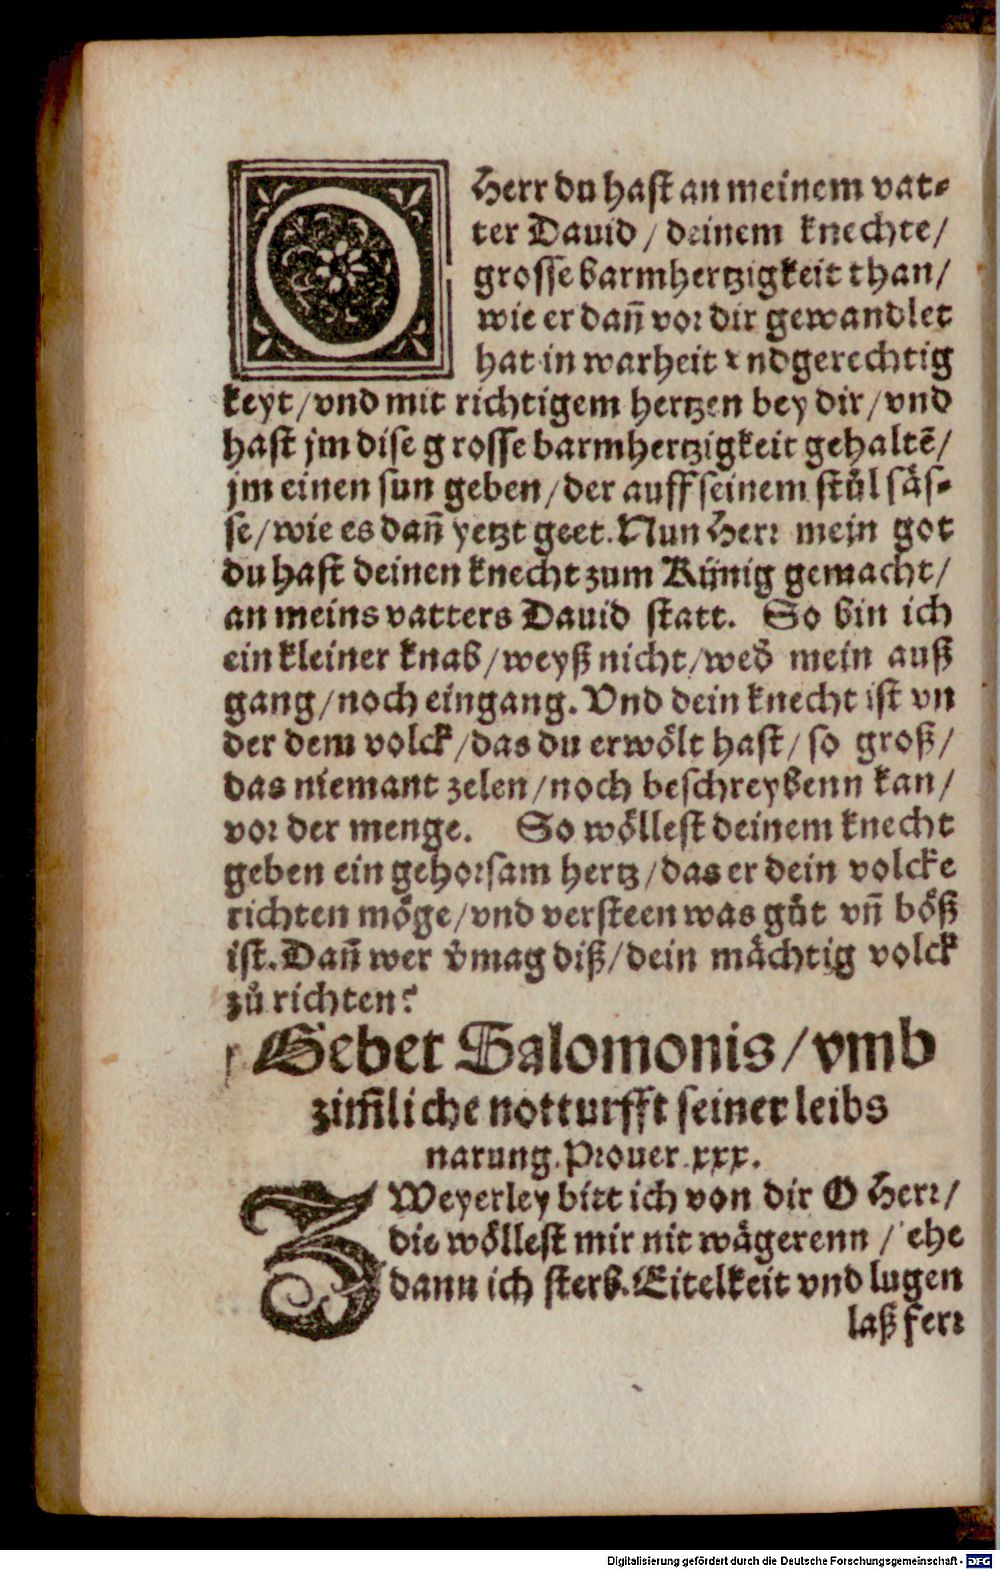 O Herr du hast an meinem vat⸗
ter Dauid / deinem knechte /
grosse barmhertzigkeit than /
wie er dañ vor dir gewandlet
hat in warheit vnd gerechtig
keyt / vnd mit richtigem hertzen bey dir / vnd
hast jm dise grosse barmhertzigkeit gehaltē /
jm einen sun geben / der auff seinem stůl säs⸗
se / wie es dañ yetzt geet. Nun Herr mein got
du hast deinen knecht zum Künig gemacht /
an meins vatters Dauid statt. So bin ich
ein kleiner knab / weyß nicht / wed̕ mein auß
gang / noch eingang. Vnd dein knecht ist vn
der dem volck / das du erwölt hast / so groß /
das niemant zelen / noch beschreybenn kan /
vor der menge. So wöllest deinem knecht
geben ein gehorsam hertz / das er dein volcke
richten möge / vnd versteen was gůt vñ böß
ist. Dañ wer v̕mag diß / dein mächtig volck
zů richten?
Gebet Salomonis / vmb
zim̃liche notturfft seiner leibs
narung. Prouer. xxx.
ZWeyerley bitt ich von dir O Herr /
die wöllest mir nit wägerenn / ehe
dann ich sterb. Eitelkeit vnd lugen
laß ferr
Digitalisierung gefördert durch die Deutsche Forschungsgemeinschaft - DFG